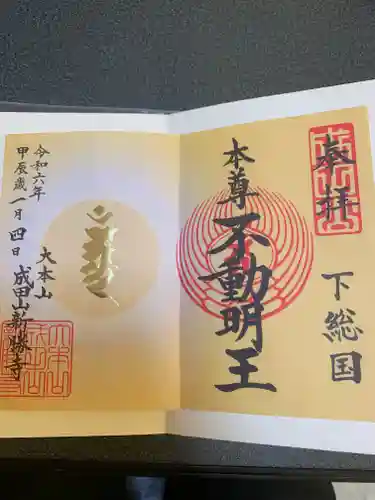 奉拝
下総国
本尊
不動明王
令和六年
甲辰歳一月四日
大本山
成田山新勝寺